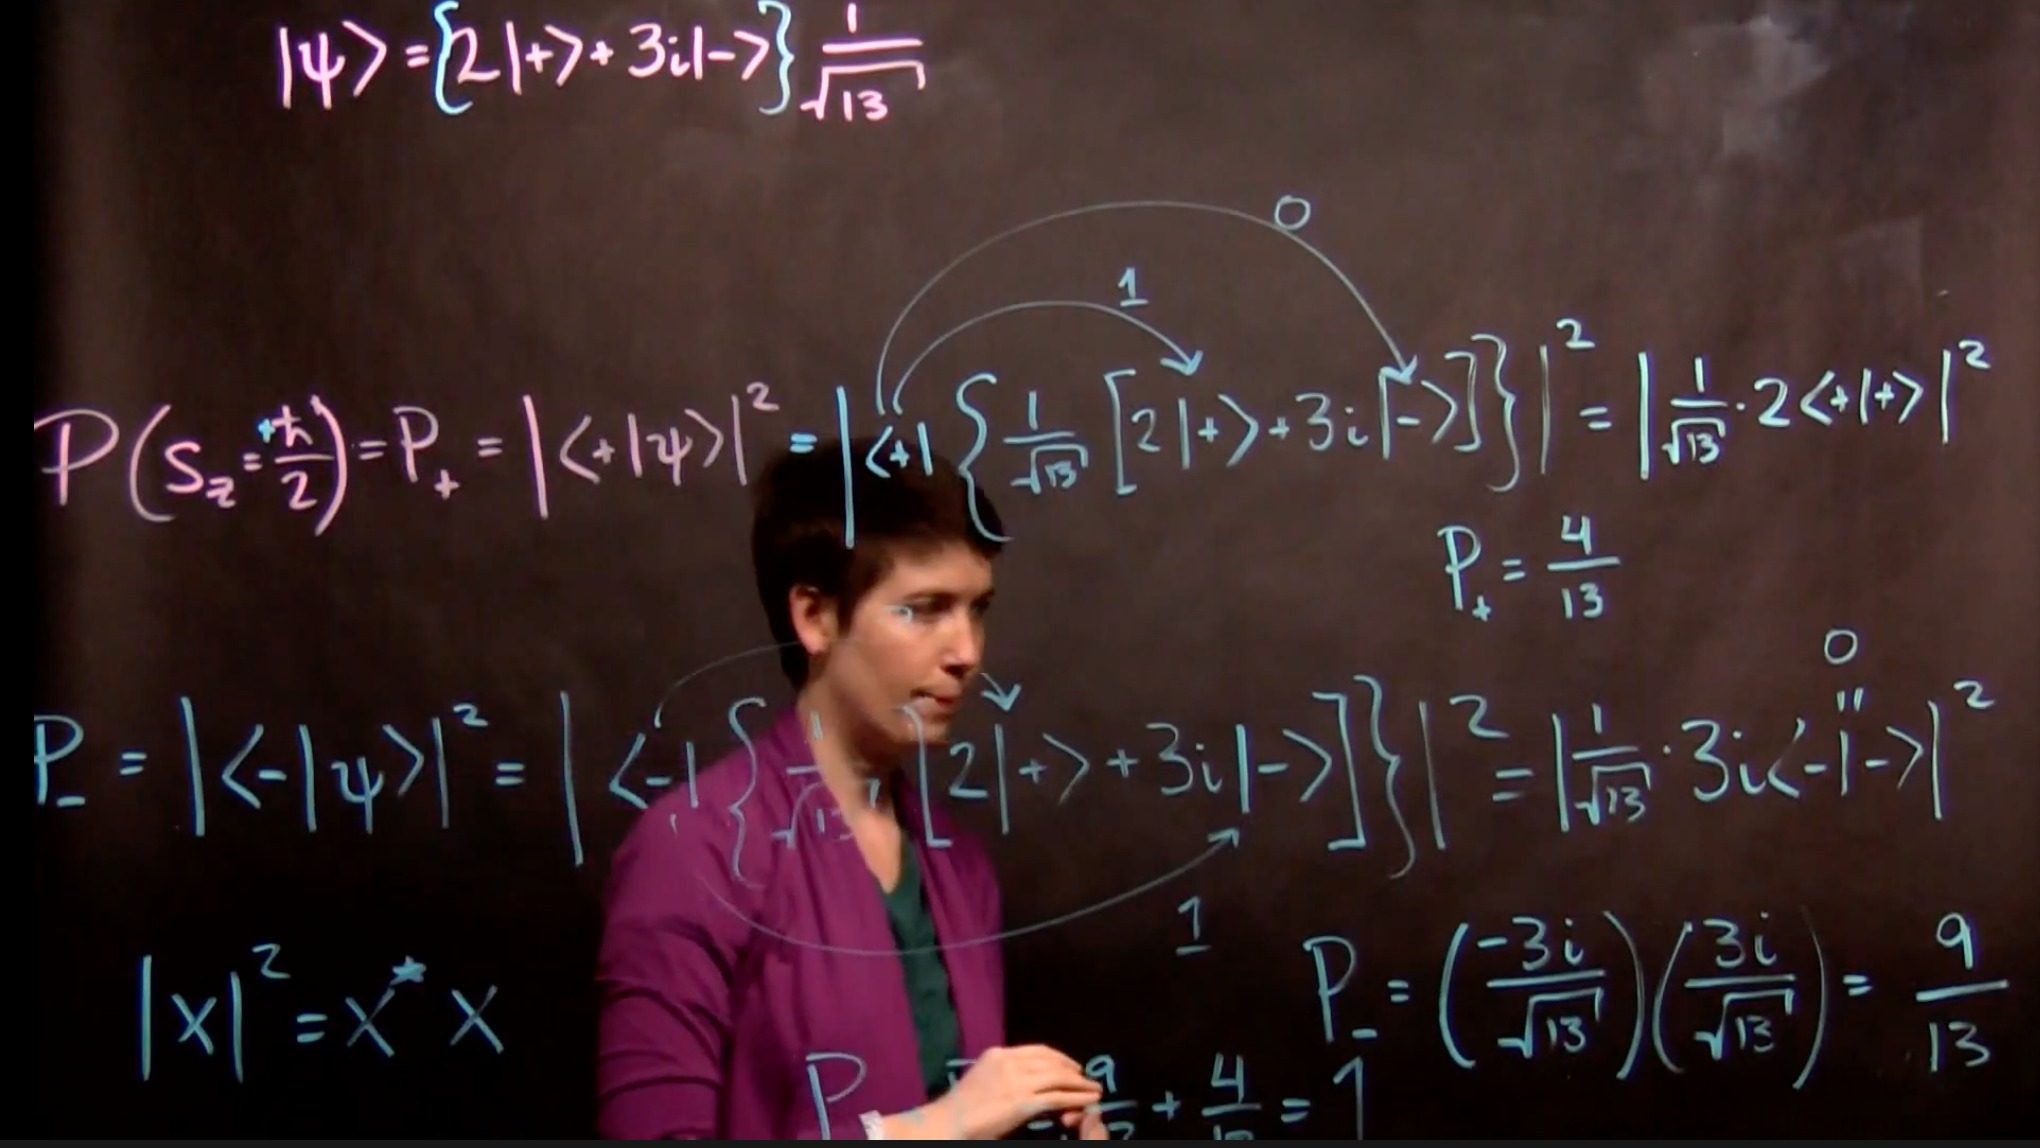 |ψ⟩ = {2|+⟩ + 3i|−⟩} 1/√13
0
1
P(S_z = +ħ/2) = P_+ = |⟨+|ψ⟩|² = |⟨+| {1/√13 [2|+⟩ + 3i|−⟩]}|² = |1/√13 · 2⟨+|+⟩|²
P_+ = 4/13
0
"
P_- = |⟨−|ψ⟩|² = |⟨−| {1/√13 [2|+⟩ + 3i|−⟩]}|² = |1/√13 · 3i⟨−|−⟩|²
1
|x|² = x* x
P_- = (−3i/√13)(3i/√13) = 9/13
P 9 + 4 = 1